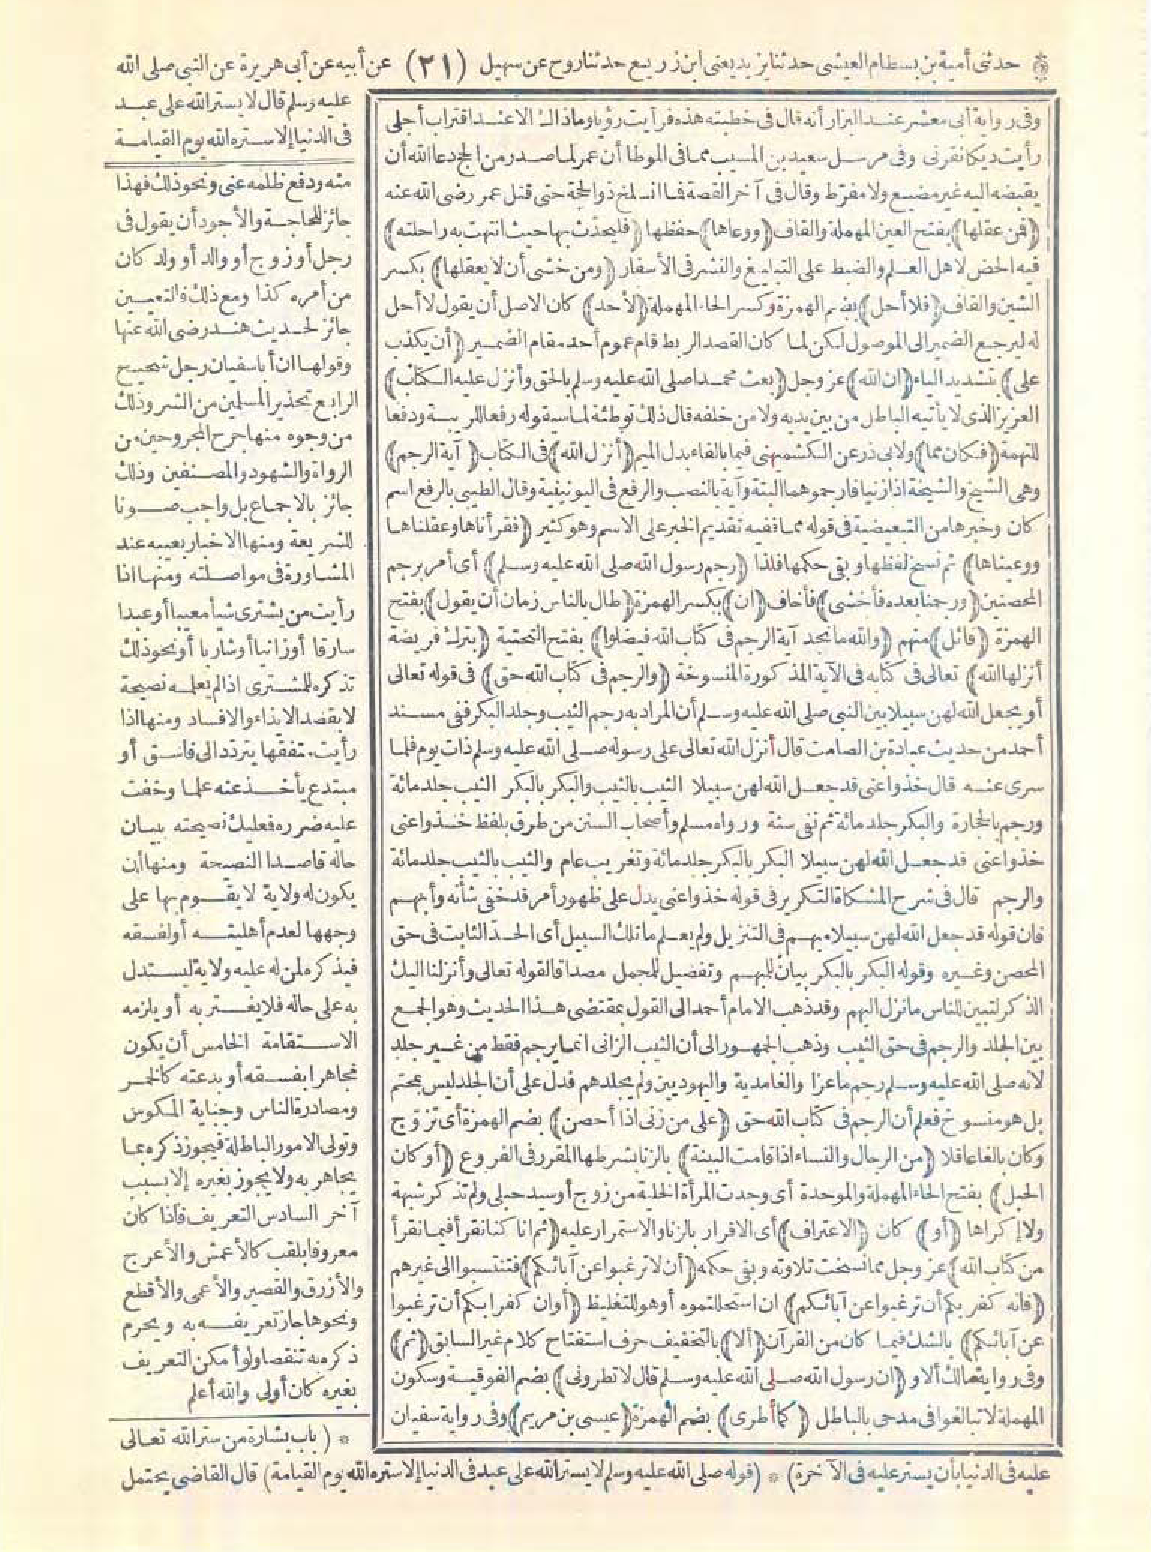 حدثني أمية بن بسطام العيشي حدثنا يزيد يعني ابن زريع حدثنا روح عن سهيل (٢١) عن أبيه عن أبي هريرة عن النبي صلى الله
عليه وسلم قال لا يستر الله على عبد
في الدنيا إلا ستره الله يوم القيامة
وفي رواية أبي معشر عند البزار أنه قال في خطبته هذه فرأيت رؤيا وماذاك الا عند اقتراب أجلي
رأيت ديكا نقرني وفي مرسل سعيد بن المسيب مما في الموطا أن عمر لما صدر من الحج دعا الله أن
يقبضه اليه غير مضيع ولا مفرط وقال في آخر القصة فما انسلخ ذو الحجة حتى قتل عمر رضي الله عنه
(فمن عقلها) بفتح العين المهملة والقاف (ووعاها) حفظها (فليحدث بها حيث انتهت به راحلته)
فيه الحض لاهل العلم والضبط على التبليغ والنشر في الأسفار (ومن خشي أن لا يعقلها) بكسر
الشين والقاف (فلا أحل) بضم الهمزة وكسر الحاء المهملة (لأحد) كان الاصل أن يقول لا أحل
له ليرجع الضمير الى الموصول لكن لما كان القصد الربط قام عموم أحد مقام الضمير (أن يكذب
علي) بتشديد الياء (ان الله) عز وجل (بعث محمدا صلى الله عليه وسلم بالحق وأنزل عليه الكتاب)
العزيز الذي لا يأتيه الباطل من بين يديه ولا من خلفه قال ذلك توطئة لما سيقوله رفعا للريبة ودفعا
للتهمة (فكان مما) ولابي ذر عن الكشميهني فيما بالفاء بدل الميم (أنزل الله) في الكتاب (آية الرجم)
وهي الشيخ والشيخة اذا زنيا فارجموهما البتة وآية بالنصب والرفع في اليونينية وقال الطيبي بالرفع اسم
كان وخبرها من التبعيضية في قوله مما ففيه تقديم الخبر على الاسم وهو كثير (فقرأناها وعقلناها
ووعيناها) ثم نسخ لفظها وبقي حكمها فلذا (رجم رسول الله صلى الله عليه وسلم) أي أمر برجم
المحصنين (ورجمنا بعده فأخشى) فأخاف (ان) بكسر الهمزة (طال بالناس زمان أن يقول) بفتح
الهمزة (قائل) منهم (والله ما نجد آية الرجم في كتاب الله فيضلوا) بفتح التحتية (بترك فريضة
أنزلها الله) تعالى في كتابه في الآية المذكورة المنسوخة (والرجم في كتاب الله حق) في قوله تعالى
أو يجعل الله لهن سبيلا بين النبي صلى الله عليه وسلم أن المراد به رجم الثيب وجلد البكر ففي مسند
أحمد من حديث عبادة بن الصامت قال أنزل الله تعالى على رسوله صلى الله عليه وسلم ذات يوم فلما
سري عنه قال خذوا عني قد جعل الله لهن سبيلا الثيب بالثيب والبكر بالبكر الثيب جلد مائة
ورجم بالحجارة والبكر جلد مائة ثم نفي سنة ورواه مسلم وأصحاب السنن من طرق بلفظ خذوا عني
خذوا عني قد جعل الله لهن سبيلا البكر بالبكر جلد مائة وتغريب عام والثيب بالثيب جلد مائة
والرجم قال في شرح المشكاة التكرير في قوله خذوا عني يدل على ظهور أمر قد خفي شأنه وأبهم
فان قوله قد جعل الله لهن سبيلا مبهم في التنزيل ولم يعلم ما تلك السبيل أي الحد الثابت في حق
المحصن وغيره وقوله البكر بالبكر بيان للمبهم وتفصيل للمجمل مصداقا لقوله تعالى وأنزلنا اليك
الذكر لتبين للناس ما نزل اليهم وقد ذهب الامام أحمد الى القول بمقتضى هذا الحديث وهو الجمع
بين الجلد والرجم في حق الثيب وذهب الجمهور الى أن الثيب الزاني انما يرجم فقط من غير جلد
لانه صلى الله عليه وسلم رجم ماعزا والغامدية واليهوديين ولم يجلدهم فدل على أن الجلد ليس بمحتم
بل هو منسوخ فعلم أن الرجم في كتاب الله حق (على من زنى اذا أحصن) بضم الهمزة أي تزوج
وكان بالغا عاقلا (من الرجال والنساء اذا قامت البينة) بالزنا بشرطها المقرر في الفروع (أو كان
الحبل) بفتح الحاء المهملة والموحدة أي وجدت المرأة الخلية من زوج أو سيد حبلى ولم تذكر شبهة
ولا إكراها (أو) كان (الاعتراف) أي الاقرار بالزنا والاستمرار عليه (ثم انا كنا نقرأ فيما نقرأ
من كتاب الله) عز وجل مما نسخت تلاوته وبقي حكمه (أن لا ترغبوا عن آبائكم) فتنتسبوا الى غيرهم
(فانه كفر بكم أن ترغبوا عن آبائكم) ان استحللتموه أو هو للتغليظ (أو ان كفرا بكم أن ترغبوا
عن آبائكم) بالشك فيما كان من القرآن (ألا) بالتخفيف حرف استفتاح كلام غير السابق (ثم)
وفي رواية مالك ألا و (ان رسول الله صلى الله عليه وسلم قال لا تطروني) بضم الفوقية وسكون
المهملة لا تبالغوا في مدحي بالباطل (كما أطري) بضم الهمزة (عيسى بن مريم) وفي رواية سفيان
منه ودفع ظلمه عني ونحو ذلك فهذا
جائز للحاجة والأجود أن يقول في
رجل أو زوج أو والد أو ولد كان
من أمره كذا ومع ذلك فالتعيين
جائز لحديث هند رضي الله عنها
وقولها ان أبا سفيان رجل شحيح
الرابع تحذير المسلمين من الشر وذلك
من وجوه منها جرح المجروحين من
الرواة والشهود والمصنفين وذلك
جائز بالاجماع بل واجب صونا
للشريعة ومنها الاخبار بعيبه عند
المشاورة في مواصلته ومنها اذا
رأيت من يشتري شيأ معيبا أو عبدا
سارقا أو زانيا أو شاربا أو نحو ذلك
تذكره للمشتري اذا لم يعلمه نصيحة
لا بقصد الايذاء والافساد ومنها اذا
رأيت متفقها يتردد الى فاسق أو
مبتدع يأخذ عنه علما وخفت
عليه ضرره فعليك نصيحته ببيان
حاله قاصدا النصيحة ومنها أن
يكون له ولاية لا يقوم بها على
وجهها لعدم أهليته أو لفسقه
فيذكره لمن له عليه ولاية ليستدل
به على حاله فلا يغتر به أو يلزمه
الاستقامة الخامس أن يكون
مجاهرا بفسقه أو بدعته كالخمر
ومصادرة الناس وجباية المكوس
وتولي الامور الباطلة فيجوز ذكره بما
يجاهر به ولا يجوز بغيره إلا بسبب
آخر السادس التعريف فاذا كان
معروفا بلقب كالأعمش والأعرج
والأزرق والقصير والأعمى والأقطع
ونحوها جاز تعريفه به ويحرم
ذكره به تنقصا ولو أمكن التعريف
بغيره كان أولى والله أعلم
* (باب بشارة من ستر الله تعالى
عليه في الدنيا بأن يستر عليه في الآخرة) * (قوله صلى الله عليه وسلم لا يستر الله على عبد في الدنيا إلا ستره الله يوم القيامة) قال القاضي يحتمل